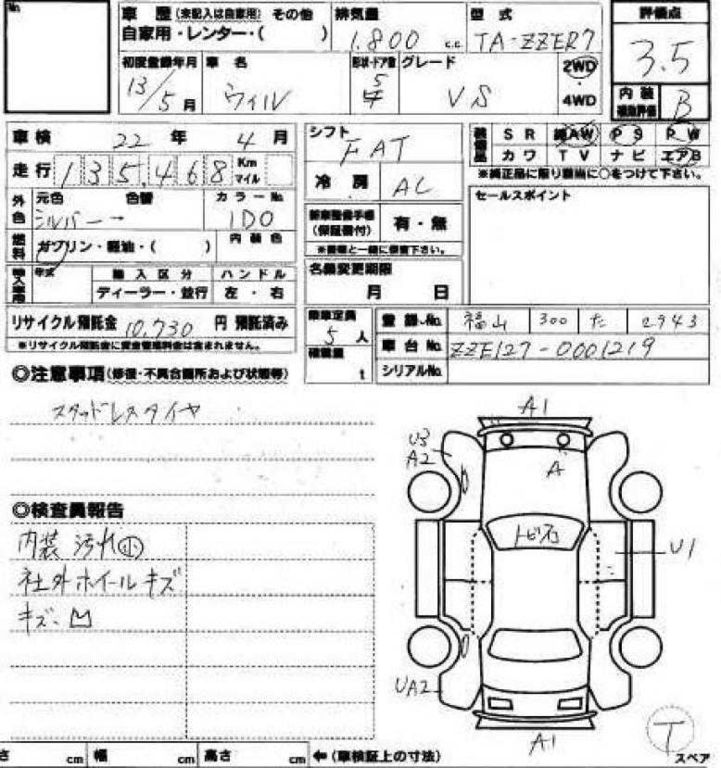 No.
車歴 (未記入は自家用) その他
自家用・レンター・( )
排気量
1.800 c.c.
型式
TA-ZZER7
評価点
3.5
初度登録年月
13/5月
車名
ウィル
形状・ドア数
5
グレード
VS
2WD
4WD
内装
補助評価
B
車検 22年 4月
シフト
FAT
装備品
SR 純AW PS PW
カワ TV ナビ エアB
※純正品に限り該当に○をつけて下さい。
走行 135,468 Km
マイル
冷房
AC
セールスポイント
外色
元色 色替
シルバー→
カラーNo.
1D0
新車整備手帳
(保証書付)
有・無
※書類と一緒に保管下さい。
燃料
ガソリン・軽油・( )
内装色
名義変更期限
月 日
輸入車用
年式
輸入区分
ディーラー・並行
ハンドル
左・右
リサイクル預託金 10,730 円 預託済み
※リサイクル預託金に資金管理料金は含まれません。
乗車定員
5人
積載量
t
登録No. 福山 300 た 2943
車台No. ZZE127-0001219
シリアルNo.
◎注意事項(修復・不具合箇所および状態等)
スタッドレスタイヤ
◎検査員報告
内装 汚れ小
社外ホイールキズ
キズ・凹
A1
U3
A2
A
トビ石
U1
UA2
A1
T
スペア
さ cm 幅 cm 高さ cm ←(車検証上の寸法)